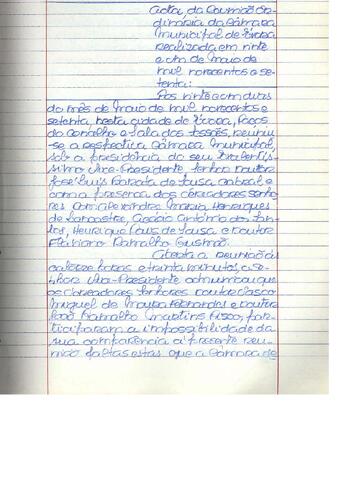 Acta da Reunião Or-
dinária da Câmara
Municipal de Évora
Realizada em vinte
e um de Maio de
mil novecentos e se-
tenta:
Aos vinte e um dias
do mês de Maio de mil novecentos e
setenta, nesta cidade de Évora, Paços
do Concelho e Sala das Sessões, reuniu-
se a respectiva Câmara Municipal,
sob a presidência do seu Excelentís-
simo Vice-Presidente, Senhor Doutor
José Luís Barata de Sousa Cabral e
com a presença dos Vereadores Senho-
res Dom Alexandre Maria Henriques
de Lancastre, Acácio António dos San-
tos, Henrique Pais de Sousa e Doutor
Flaviano Ramalho Gusmão.
Aberta a reunião às
catorze horas e trinta minutos, o Se-
nhor Vice-Presidente comunicou que
os Vereadores Senhores Doutor Vasco
Miguel de Moura Fernandes e Doutor
João Ramalho Martins Pisco, par-
ticiparam a impossibilidade da
sua comparência à presente reu-
nião faltas estas que a Câmara de